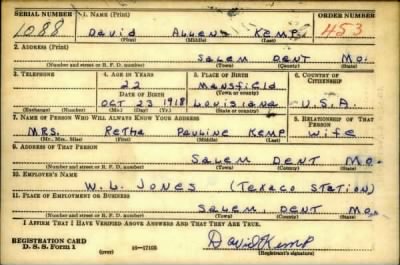 SERIAL NUMBER 1. NAME (Print) ORDER NUMBER
1088 David Allens Kemp. 453
(First) (Middle) (Last)
2. ADDRESS (Print)
Salem Dent Mo.
(Number and street or R. F. D. number) (Town) (County) (State)
3. TELEPHONE 4. AGE IN YEARS 5. PLACE OF BIRTH 6. COUNTRY OF CITIZENSHIP
22 Mansfield
DATE OF BIRTH (Town or county)
Oct 23 1918 Louisiana U.S.A.
(Exchange) (Number) (Mo.) (Day) (Yr.) (State or country)
7. NAME OF PERSON WHO WILL ALWAYS KNOW YOUR ADDRESS 8. RELATIONSHIP OF THAT PERSON
Mrs. Retha Pauline Kemp Wife
(Mr., Mrs., Miss) (First) (Middle) (Last)
9. ADDRESS OF THAT PERSON
Salem Dent Mo
(Number and street or R. F. D. number) (Town) (County) (State)
10. EMPLOYER'S NAME
W. L. Jones (Texaco Station)
11. PLACE OF EMPLOYMENT OR BUSINESS
Salem, Dent Mo.
(Number and street or R. F. D. number) (Town) (County) (State)
I AFFIRM THAT I HAVE VERIFIED ABOVE ANSWERS AND THAT THEY ARE TRUE.
REGISTRATION CARD
D. S. S. Form 1 (over) 16—17105 David Kemp
(Registrant's signature)